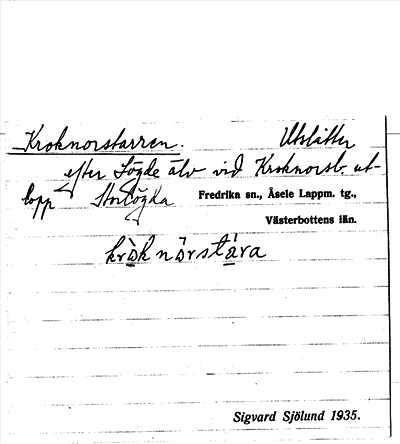 Kroknorstarren. Utslåtter
efter Lögde älv vid Kroknorsb. ut-
lopp Storlögda Fredrika sn., Åsele Lappm. tg.,
Västerbottens län.
kròk nòrstára
Sigvard Sjölund 1935.